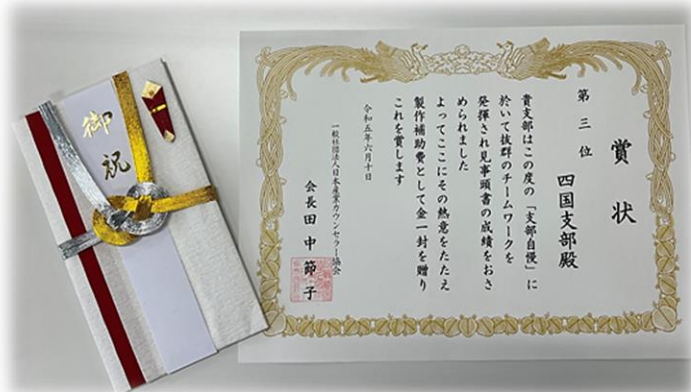 御祝
賞状
第三位
四国支部殿
貴支部はこの度の「支部自慢」に
於いて抜群のチームワークを
発揮され見事頭書の成績をおさ
められました
よってここにその熱意をたたえ
製作補助費として金一封を贈り
これを賞します
令和五年六月十日
一般社団法人日本産業カウンセラー協会
会長田中節子